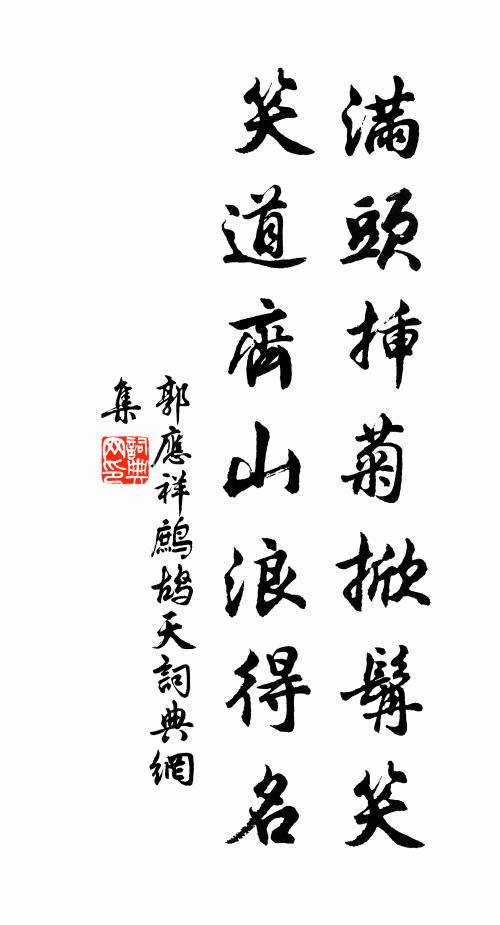 滿頭插菊掀髯笑
笑道齊山浪得名
郭應祥鷓鴣天詞典網
集
詞典
网印